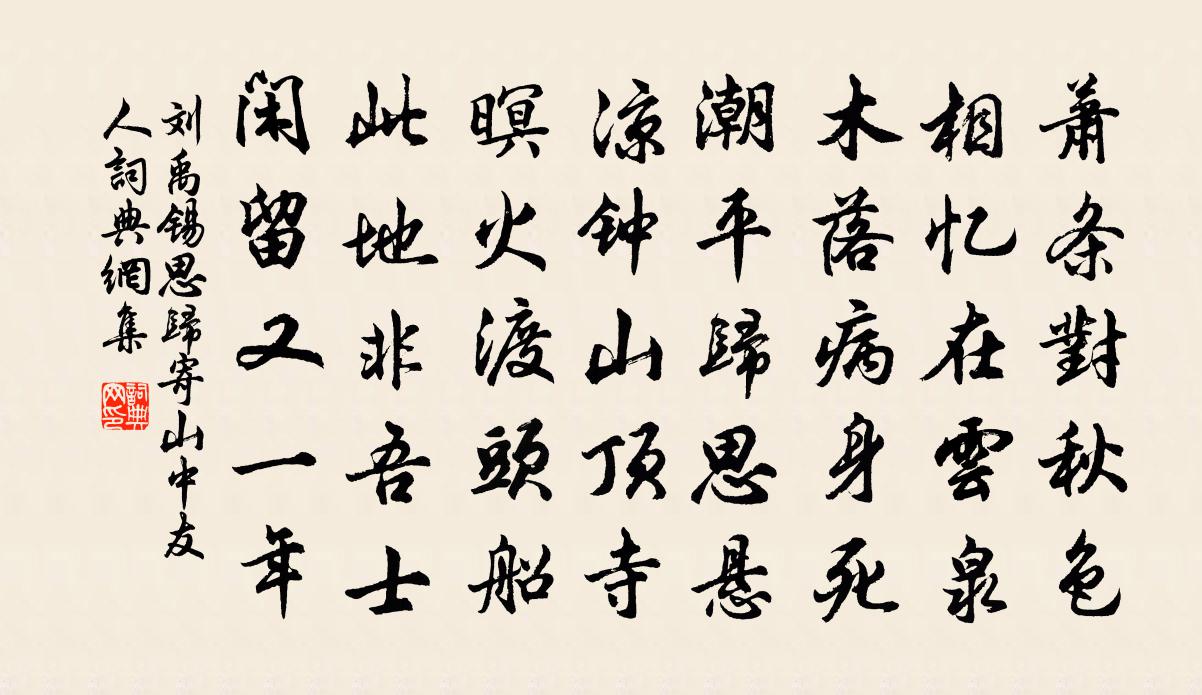 萧条對秋色
相忆在雲泉
木落病身死
潮平歸思悬
凉钟山顶寺
暝火渡頭船
此地非吾士
闲留又一年
刘禹锡思歸寄山中友
人詞典網集
詞典網印